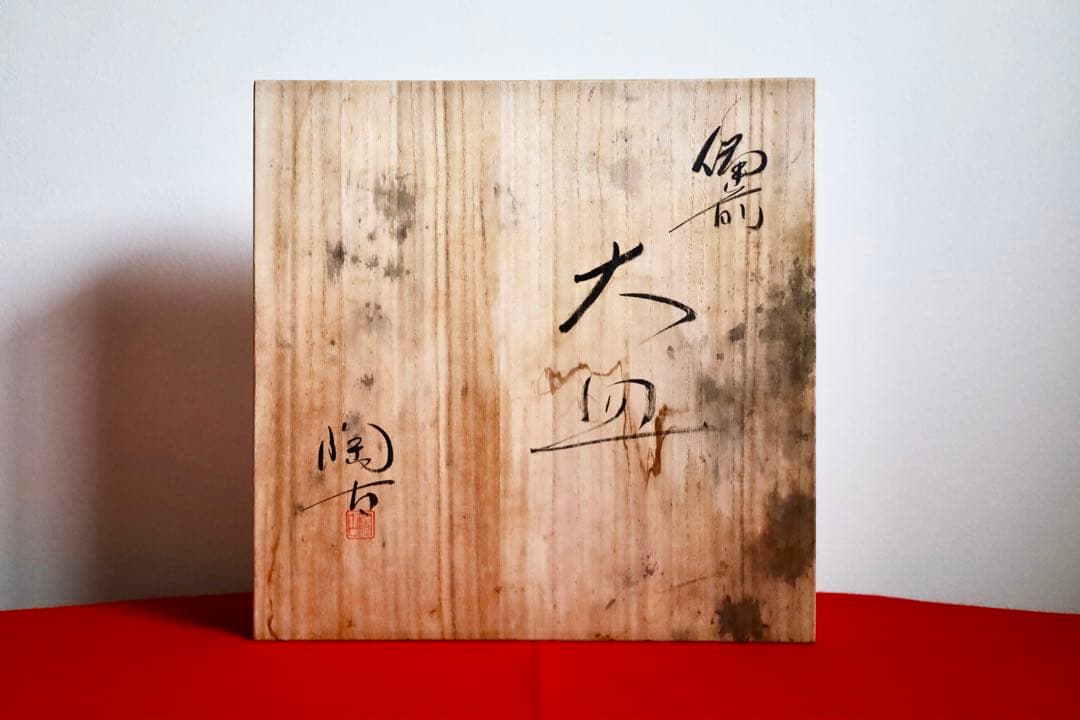 備前
大皿
陶古